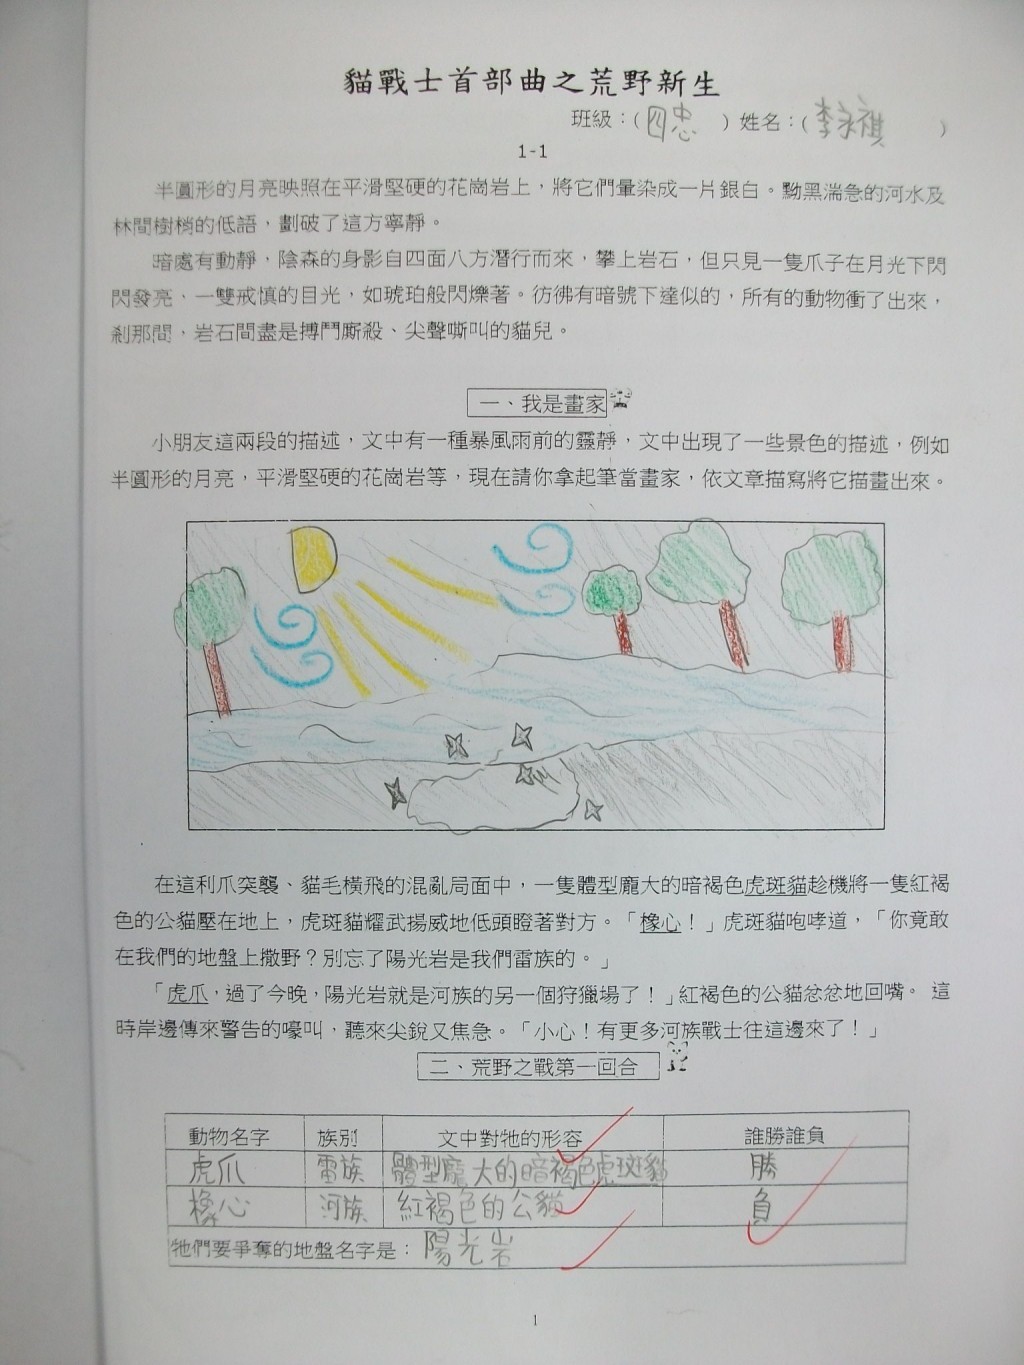 貓戰士首部曲之荒野新生
班級：( 四忠 ) 姓名：( 李永祺 )
1-1
半圓形的月亮映照在平滑堅硬的花崗岩上，將它們暈染成一片銀白。黝黑湍急的河水及
林間樹梢的低語，劃破了這方寧靜。
暗處有動靜，陰森的身影自四面八方潛行而來，攀上岩石，但只見一隻爪子在月光下閃
閃發亮、一雙戒慎的目光，如琥珀般閃爍著。彷彿有暗號下達似的，所有的動物衝了出來，
剎那間，岩石間盡是搏鬥廝殺、尖聲嘶叫的貓兒。
一、我是畫家
小朋友這兩段的描述，文中有一種暴風雨前的靈靜，文中出現了一些景色的描述，例如
半圓形的月亮，平滑堅硬的花崗岩等，現在請你拿起筆當畫家，依文章描寫將它描畫出來。
在這利爪突襲、貓毛橫飛的混亂局面中，一隻體型龐大的暗褐色虎斑貓趁機將一隻紅褐
色的公貓壓在地上，虎斑貓耀武揚威地低頭瞪著對方。「橡心！」虎斑貓咆哮道，「你竟敢
在我們的地盤上撒野？別忘了陽光岩是我們雷族的。」
「虎爪，過了今晚，陽光岩就是河族的另一個狩獵場了！」紅褐色的公貓忿忿地回嘴。 這
時岸邊傳來警告的嚎叫，聽來尖銳又焦急。「小心！有更多河族戰士往這邊來了！」
二、荒野之戰第一回合
動物名字 族別 文中對牠的形容 誰勝誰負
虎爪 雷族 體型龐大的暗褐色虎斑貓 勝
橡心 河族 紅褐色的公貓 負
牠們要爭奪的地盤名字是：陽光岩
1